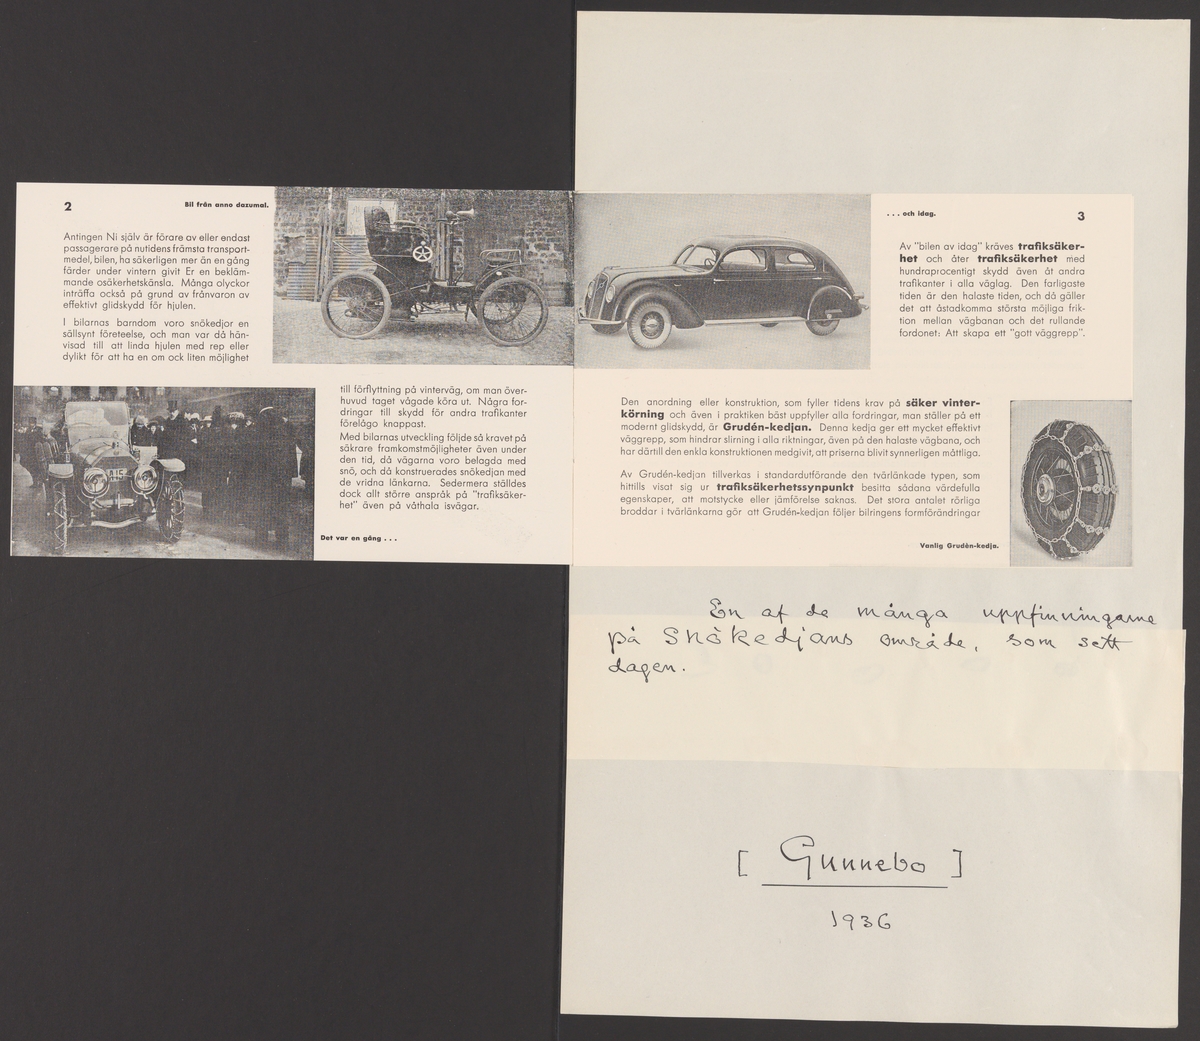 2
Bil från anno dazumal.
Antingen Ni själv är förare av eller endast
passagerare på nutidens främsta transport-
medel, bilen, ha säkerligen mer än en gång
färder under vintern givit Er en bekläm-
mande osäkerhetskänsla. Många olyckor
inträffa också på grund av frånvaron av
effektivt glidskydd för hjulen.
I bilarnas barndom voro snökedjor en
sällsynt företeelse, och man var då hän-
visad till att linda hjulen med rep eller
dylikt för att ha en om ock liten möjlighet
till förflyttning på vinterväg, om man över-
huvud taget vågade köra ut. Några for-
dringar till skydd för andra trafikanter
förelågo knappast.
Med bilarnas utveckling följde så kravet på
säkrare framkomstmöjligheter även under
den tid, då vägarna voro belagda med
snö, och då konstruerades snökedjan med
de vridna länkarna. Sedermera ställdes
dock allt större anspråk på "trafiksäker-
het" även på våthala isvägar.
Det var en gång . . .
. . . och idag.
3
Av "bilen av idag" kräves trafiksäker-
het och åter trafiksäkerhet med
hundraprocentigt skydd även åt andra
trafikanter i alla väglag. Den farligaste
tiden är den halaste tiden, och då gäller
det att åstadkomma största möjliga frik-
tion mellan vägbanan och det rullande
fordonet: Att skapa ett "gott väggrepp".
Den anordning eller konstruktion, som fyller tidens krav på säker vinter-
körning och även i praktiken bäst uppfyller alla fordringar, man ställer på ett
modernt glidskydd, är Grudén-kedjan. Denna kedja ger ett mycket effektivt
väggrepp, som hindrar slirning i alla riktningar, även på den halaste vägbana, och
har därtill den enkla konstruktionen medgivit, att priserna blivit synnerligen måttliga.
Av Grudén-kedjan tillverkas i standardutförande den tvärlänkade typen, som
hittills visat sig ur trafiksäkerhetssynpunkt besitta sådana värdefulla
egenskaper, att motstycke eller jämförelse saknas. Det stora antalet rörliga
broddar i tvärlänkarna gör att Grudén-kedjan följer bilringens formförändringar
Vanlig Grudén-kedja.
En af de många uppfinningarne
på Snökedjans område, som sett
dagen.
[ Gunnebo ]
1936